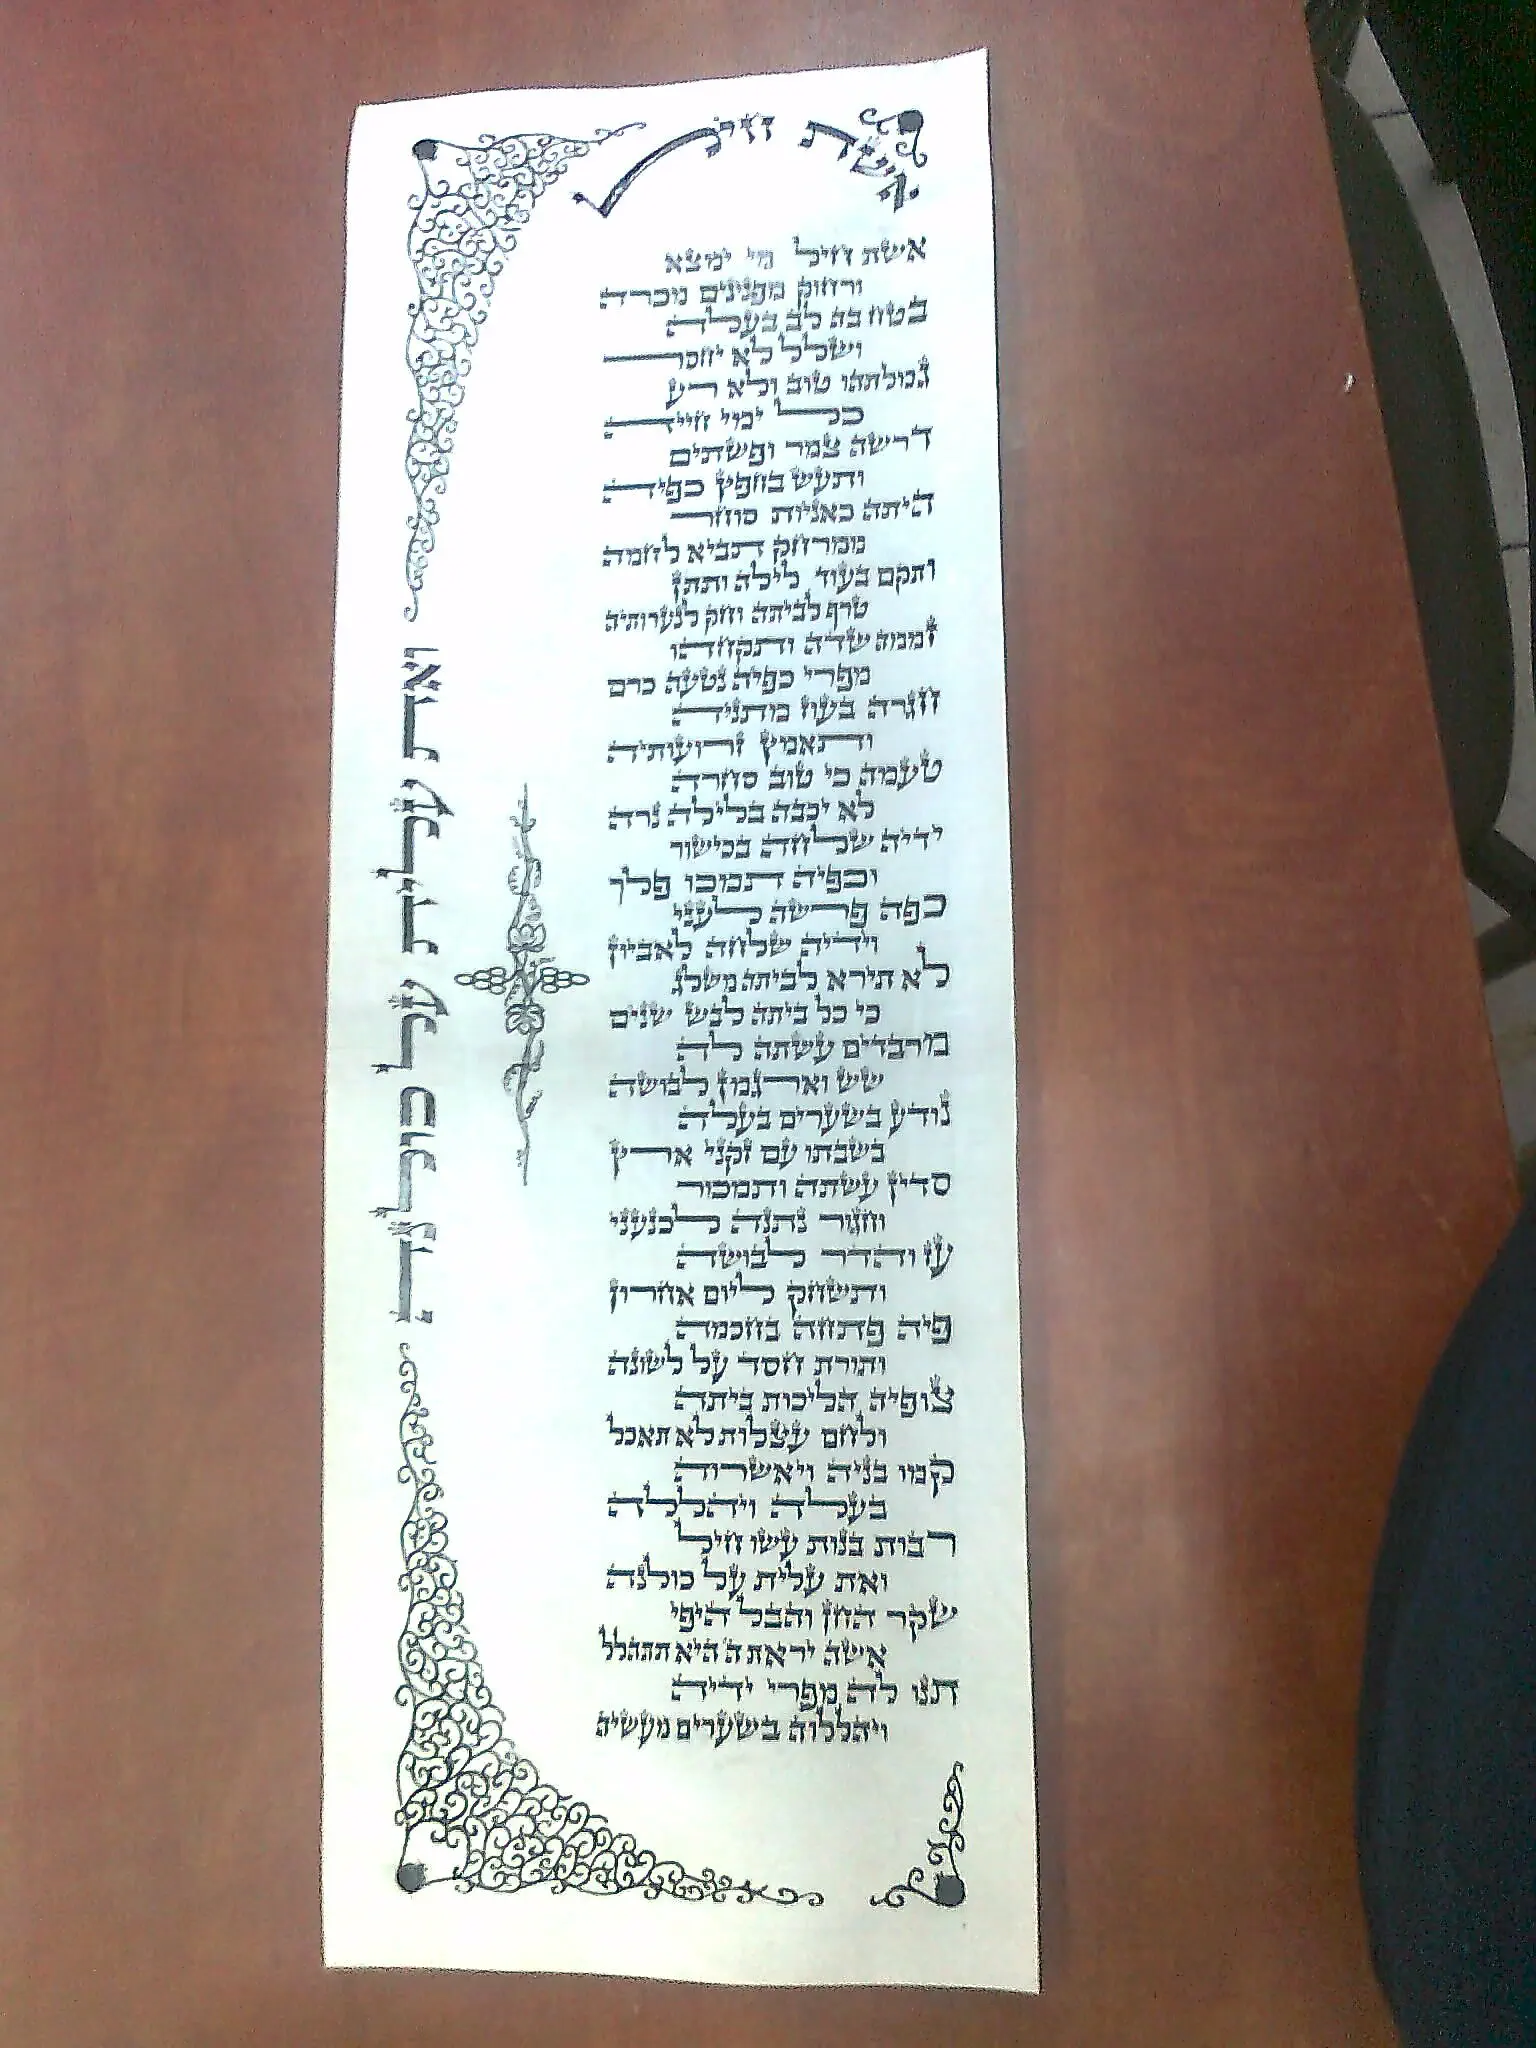 אשת חיל
אשת חיל מי ימצא
ורחוק מפנינים מכרה
בטח בה לב בעלה
ושלל לא יחסר
גמלתהו טוב ולא רע
כל ימי חייה
דרשה צמר ופשתים
ותעש בחפץ כפיה
היתה כאניות סוחר
ממרחק תביא לחמה
ותקם בעוד לילה ותתן
טרף לביתה וחק לנערותיה
זממה שדה ותקחהו
מפרי כפיה נטעה כרם
חגרה בעוז מתניה
ותאמץ זרועותיה
טעמה כי טוב סחרה
לא יכבה בלילה נרה
ידיה שלחה בכישור
וכפיה תמכו פלך
כפה פרשה לעני
וידיה שלחה לאביון
לא תירא לביתה משלג
כי כל ביתה לבש שנים
מרבדים עשתה לה
שש וארגמן לבושה
נודע בשערים בעלה
בשבתו עם זקני ארץ
סדין עשתה ותמכור
וחגור נתנה לכנעני
עז והדר לבושה
ותשחק ליום אחרון
פיה פתחה בחכמה
ותורת חסד על לשונה
צופיה הליכות ביתה
ולחם עצלות לא תאכל
קמו בניה ויאשרוה
בעלה ויהללה
רבות בנות עשו חיל
ואת עלית על כולנה
שקר החן והבל היפי
אשה יראת ה' היא תתהלל
תנו לה מפרי ידיה
ויהללוה בשערים מעשיה
ואת עלית על כולנה: